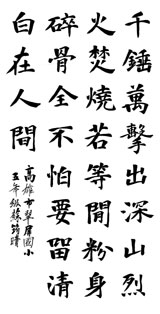 千錘萬擊出深山烈
火焚燒若等閒粉身
碎骨全不怕要留清
白在人間
高雄市翠屏國小
五年級蘇筠晴